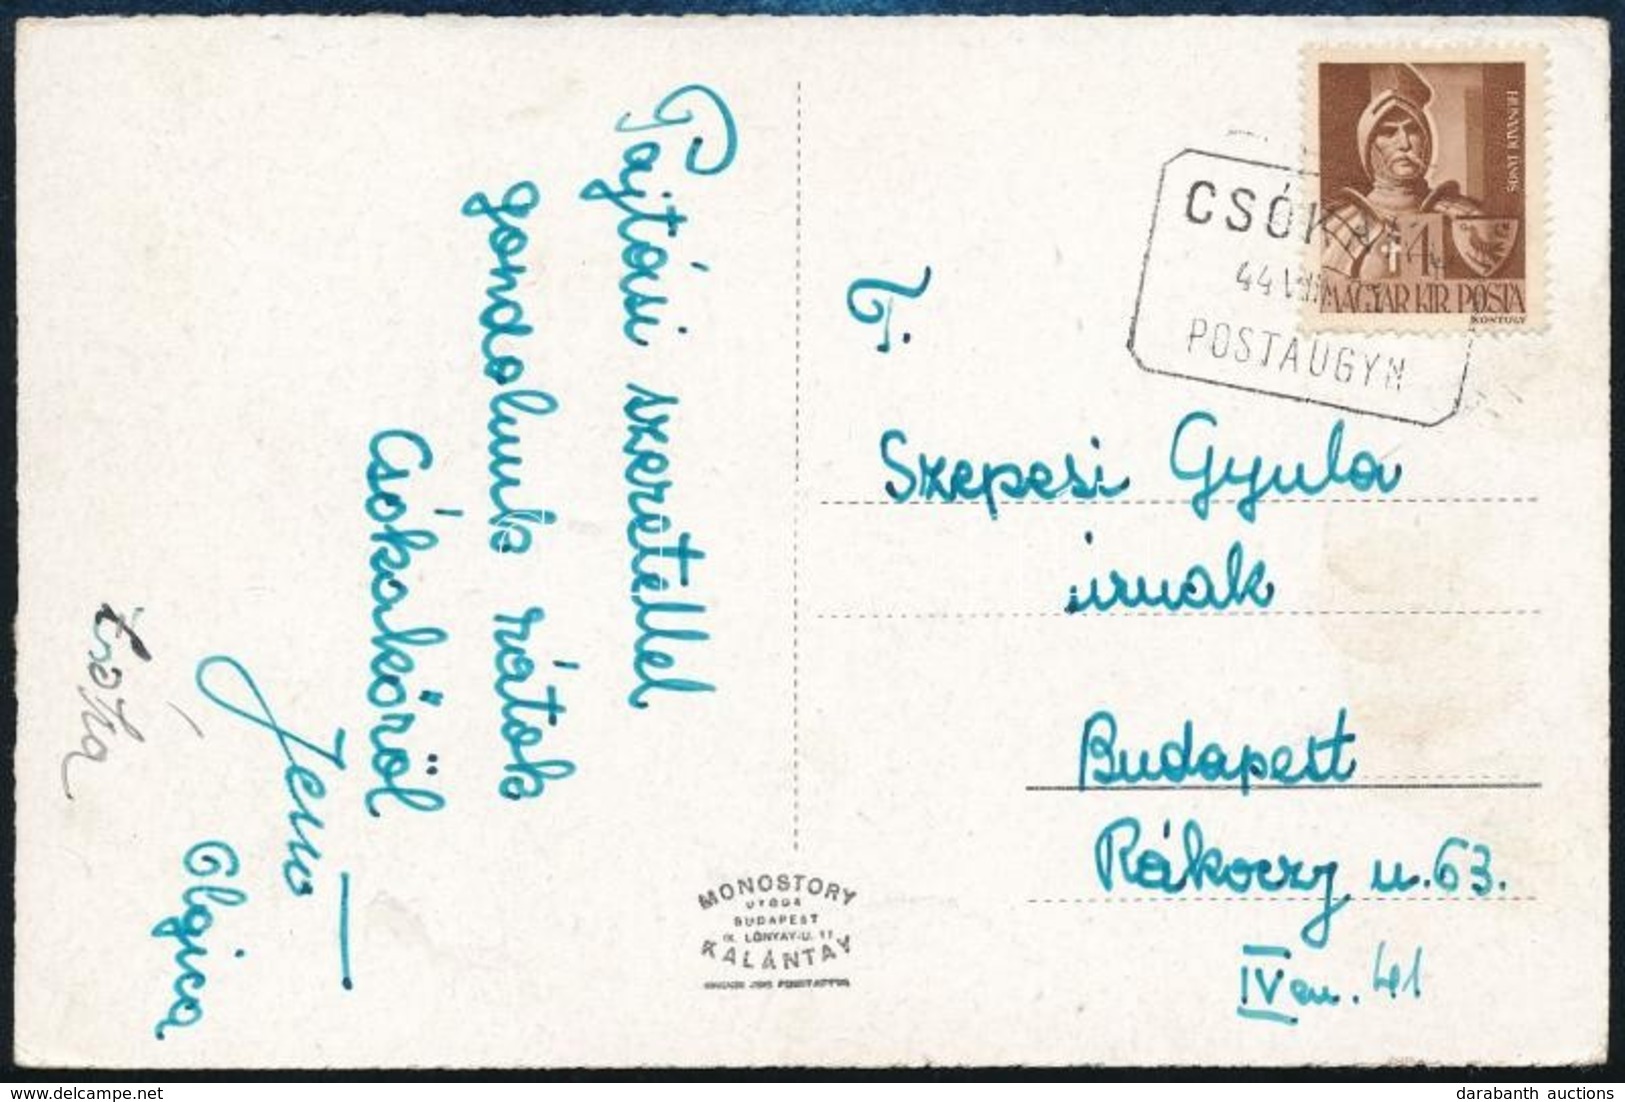 Pajtási szeretettel
gondolunk rátok
Csókakőről
Jenő
Olgica
Zsóka
MONOSTORY
UTÓDA
BUDAPEST
IX. LÓNYAY-U. 11
KALÁNTAY
HUNYADI JÁNOS
4
MAGYAR KIR. POSTA
KONTULY
CSÓK
44
POSTAÜGYN
T.
Szepesi Gyula
úrnak
Budapest
Rákoczy u. 63.
IV em. 41
darabanth auctions